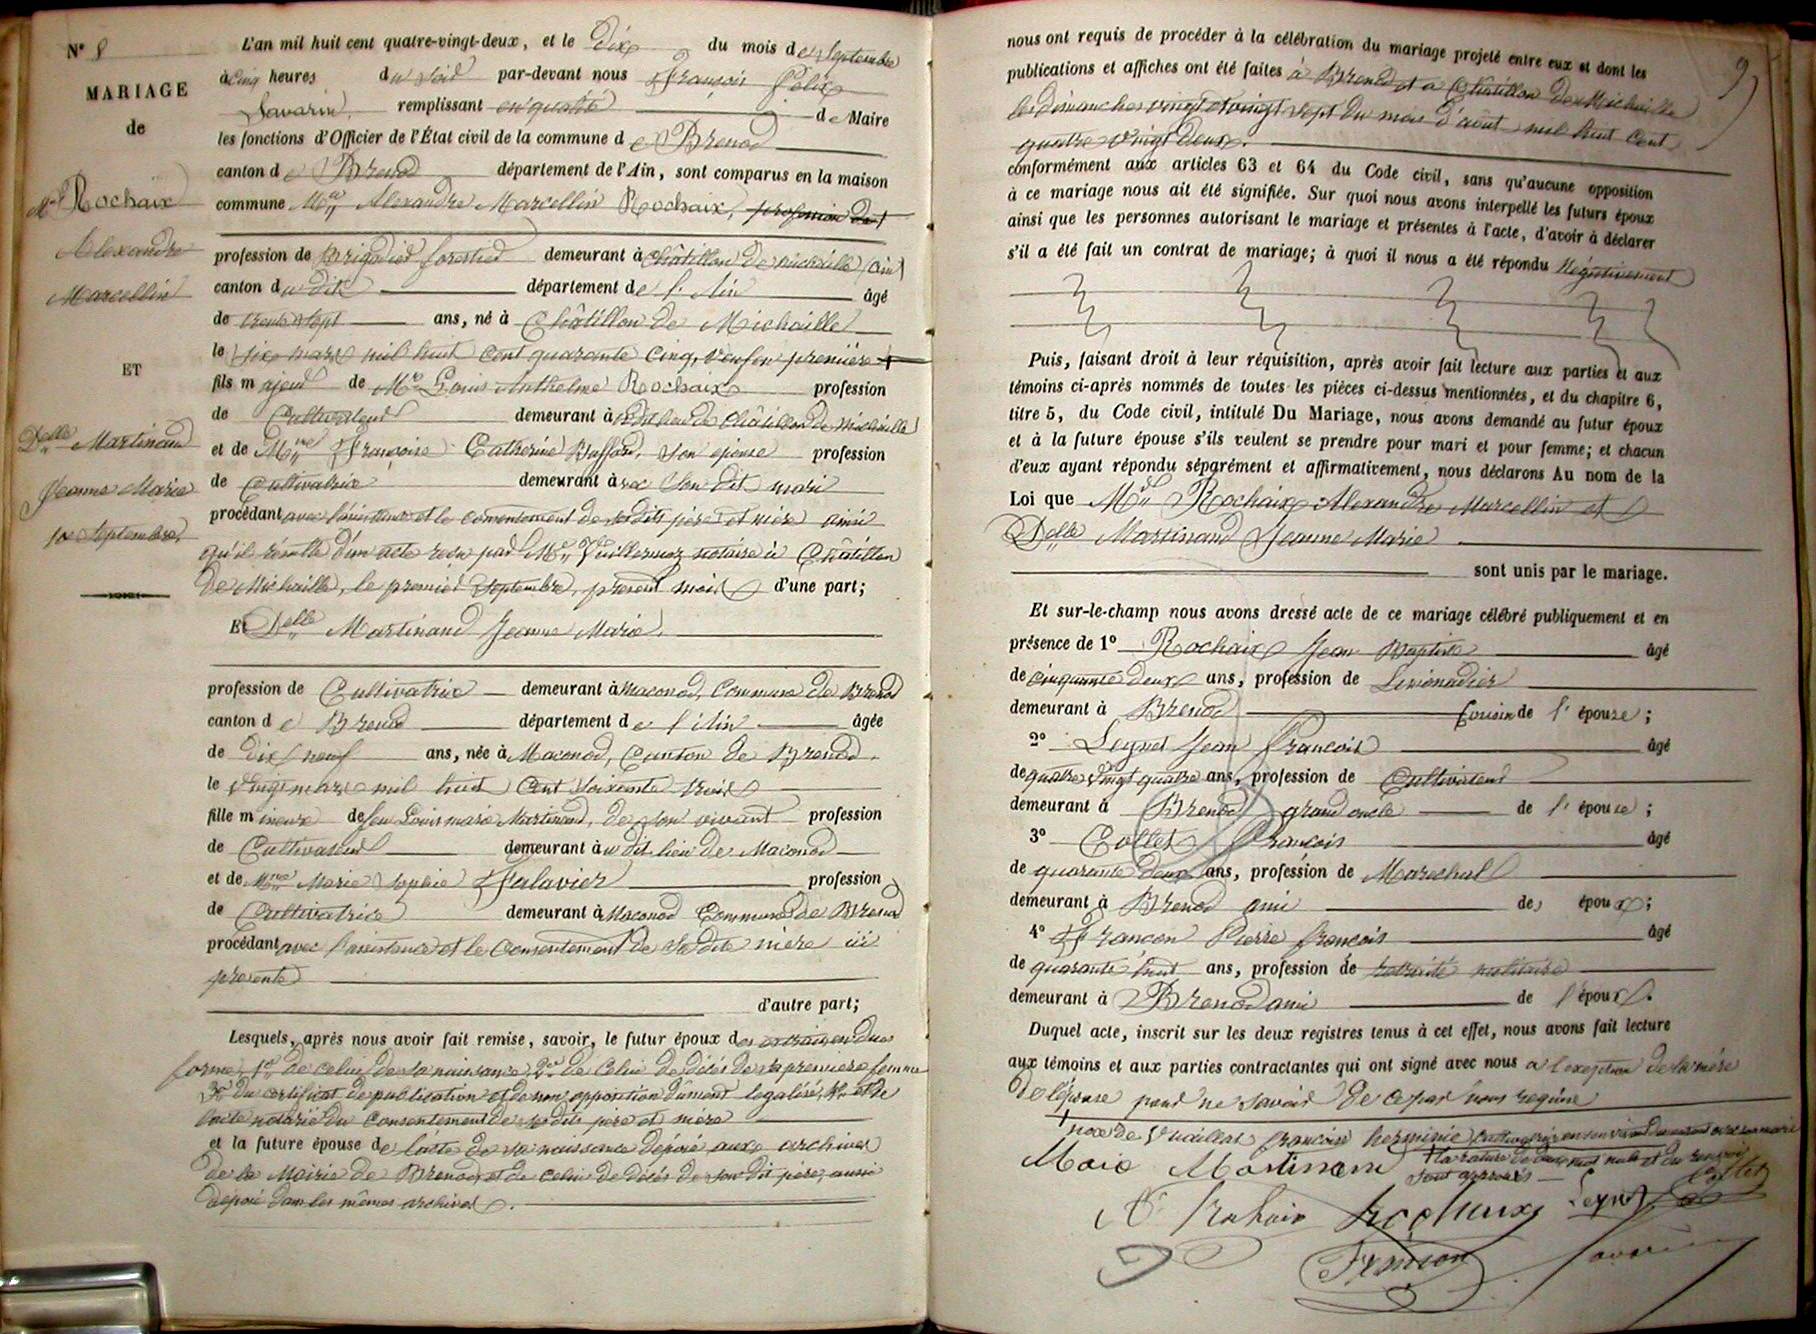 N° 8
MARIAGE
de
Mr Rochaix
Alexandre
Marcellin
ET
Delle Martinand
Jeanne Marie
10 Septembre
L'an mil huit cent quatre-vingt-deux, et le dix du mois de Septembre
à cinq heures du soir par-devant nous François Félix
Savarin, remplissant en qualité de Maire
les fonctions d'Officier de l'État civil de la commune de Brenod
canton de Brenod département de l'Ain, sont comparus en la maison
commune Mr Alexandre Marcellin Rochaix, profession de
profession de Brigadier forestier demeurant à Châtillon de Michaille (ain)
canton du dit département de l'Ain âgé
de trente sept ans, né à Châtillon de Michaille
le six mars mil huit cent quarante cinq, veuf en première
fils majeur de Mr Louis Anthelme Rochaix profession
de Cultivateur demeurant à Châtillon de Michaille
et de Mme Françoise Catherine Buffard, son épouse profession
de Cultivatrice demeurant avec son dit mari
procédant avec l'assistance et le consentement de ses dits père et mère ainsi
qu'il résulte d'un acte reçu par Me Vuillermoz notaire à Châtillon
de Michaille, le premier Septembre, présent mois d'une part;
Et Delle Martinand Jeanne Marie,
profession de Cultivatrice demeurant à Maconod, Commune de Brenod
canton de Brenod département de l'Ain âgée
de dix neuf ans, née à Maconod, Canton de Brenod,
le vingt mars mil huit cent soixante trois
fille mineure de feu Louis marie Martinand, de son vivant profession
de Cultivateur demeurant au dit lieu de Maconod
et de Mme Marie Sophie Falavier profession
de Cultivatrice demeurant à Maconod Commune de Brenod
procédant avec l'assistance et le consentement de sa dite mère ici
présente
d'autre part;
Lesquels, après nous avoir fait remise, savoir, le futur époux des extraits en dues
formes 1° de celui de sa naissance 2° de celui de décès de sa première femme
3° du certificat de publication et de non opposition dûment légalisé, 4° et de
l'acte notarié du consentement de ses dits père et mère
et la future épouse de l'acte de sa naissance déposé aux archives
de la Mairie de Brenod, et de celui de décès de son dit père, aussi
déposé dans les mêmes archives.
9
nous ont requis de procéder à la célébration du mariage projeté entre eux et dont les
publications et affiches ont été faites à Brenod et à Châtillon de Michaille
les dimanches vingt et vingt sept du mois d'août mil huit cent
quatre vingt deux.
conformément aux articles 63 et 64 du Code civil, sans qu'aucune opposition
à ce mariage nous ait été signifiée. Sur quoi nous avons interpellé les futurs époux
ainsi que les personnes autorisant le mariage et présentes à l'acte, d'avoir à déclarer
s'il a été fait un contrat de mariage; à quoi il nous a été répondu Négativement
Puis, faisant droit à leur réquisition, après avoir fait lecture aux parties et aux
témoins ci-après nommés de toutes les pièces ci-dessus mentionnées, et du chapitre 6,
titre 5, du Code civil, intitulé Du Mariage, nous avons demandé au futur époux
et à la future épouse s'ils veulent se prendre pour mari et pour femme; et chacun
d'eux ayant répondu séparément et affirmativement, nous déclarons Au nom de la
Loi que Mr Rochaix Alexandre Marcellin et
Delle Martinand Jeanne Marie
sont unis par le mariage.
Et sur-le-champ nous avons dressé acte de ce mariage célébré publiquement et en
présence de 1° Rochaix Jean Baptiste âgé
de cinquante deux ans, profession de Limonadier
demeurant à Brenod Cousin de l'épouse;
2° Leynet Jean François âgé
de quatre vingt quatre ans, profession de Cultivateur
demeurant à Brenod grand oncle de l'épouse;
3° Collet François âgé
de quarante deux ans, profession de Marechal
demeurant à Brenod ami des époux;
4° Françon Pierre françois âgé
de quarante huit ans, profession de retraité militaire
demeurant à Brenod ami de l'époux.
Duquel acte, inscrit sur les deux registres tenus à cet effet, nous avons fait lecture
aux témoins et aux parties contractantes qui ont signé avec nous à l'exception de la mère
de l'épouse pour ne savoir de ce par nous requise
noce de Vuaillat françoise herminie Cultivatrice en son vivant demeurant avec son mari
la rature de deux mot nuls et du renvoi
sont approuvés
Marie Martinand
Collet
A. Rochaix Rochaix Leynet
Françon Savarin